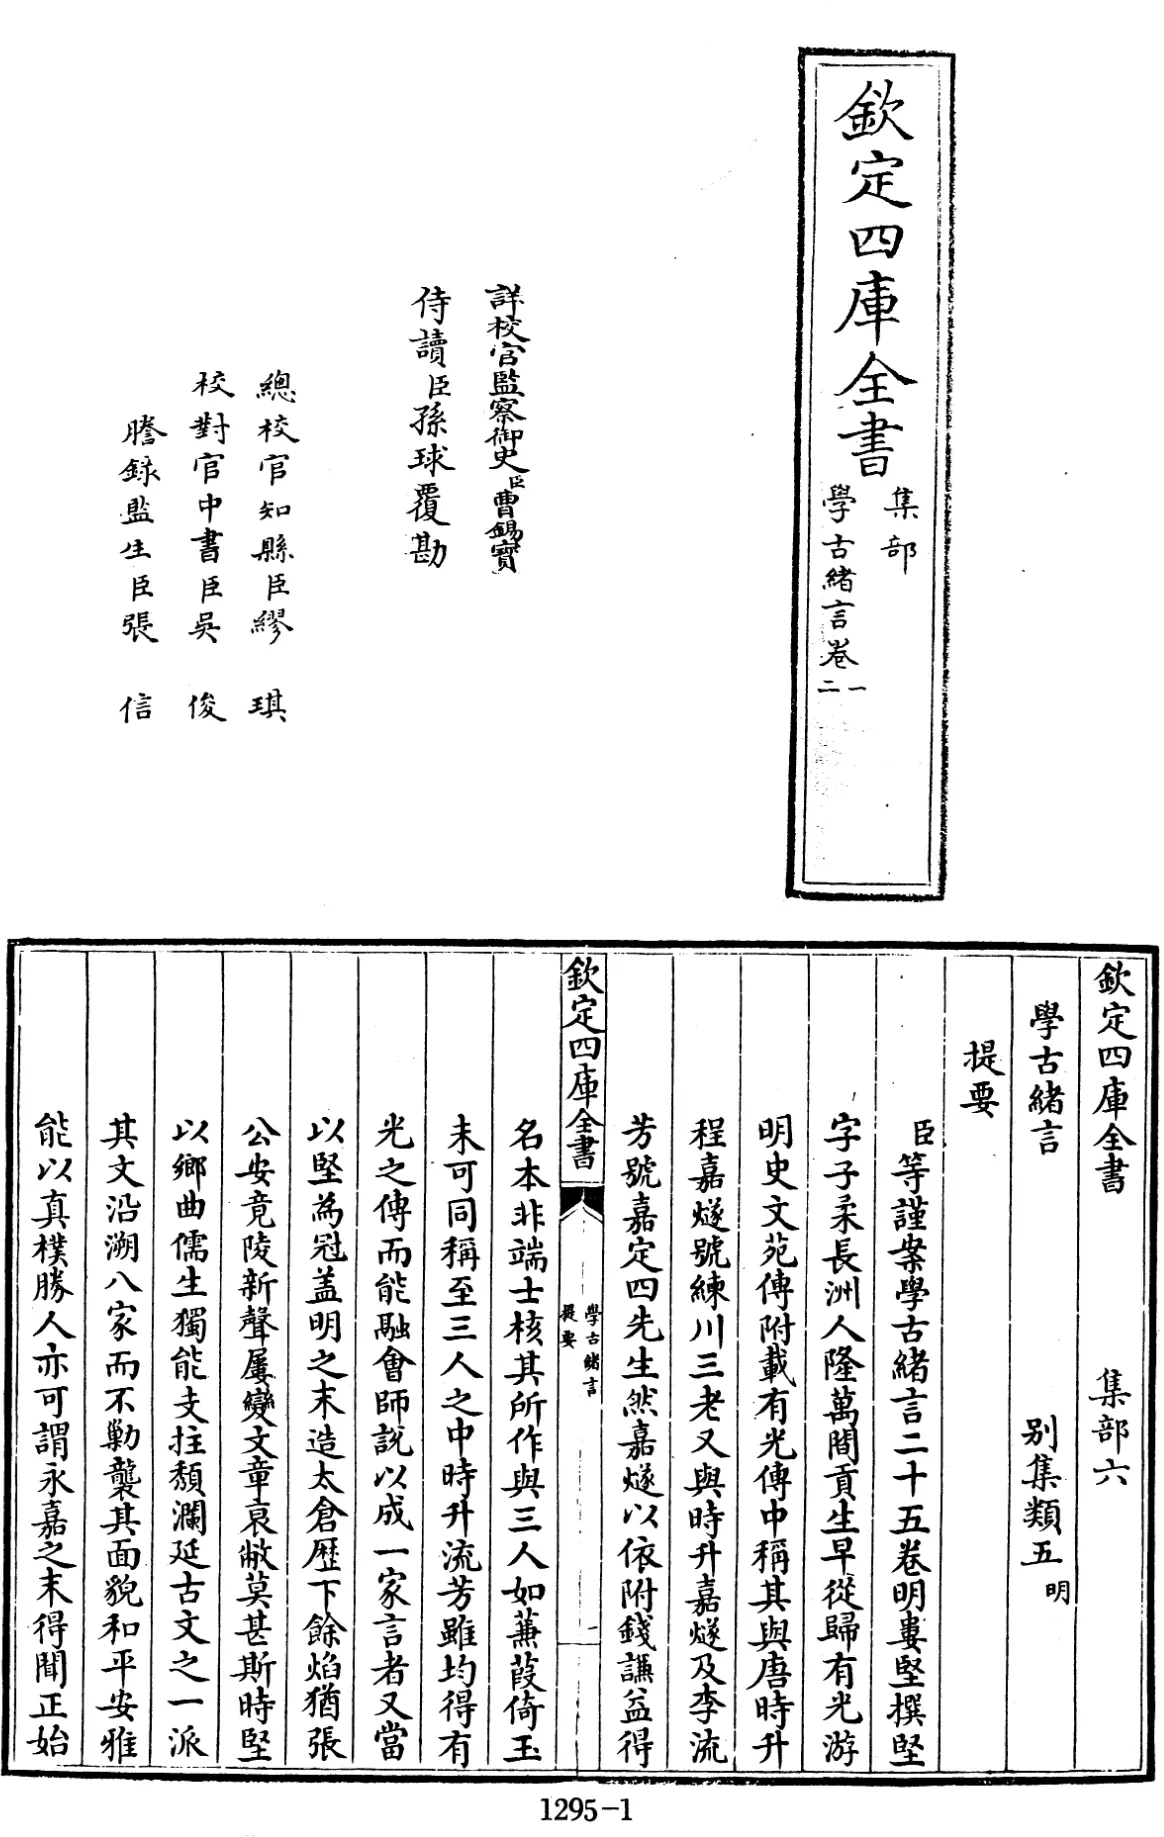 欽定四庫全書
集部
學古緒言卷一
二
詳校官監察御史臣曹錫寶
侍讀臣孫球覆勘
總校官知縣臣繆琪
校對官中書臣吳俊
謄錄監生臣張信
欽定四庫全書 集部六
學古緒言 别集類五明
提要
臣等謹案學古緒言二十五卷明婁堅撰堅
字子柔長洲人隆萬間貢生早從歸有光游
明史文苑傳附載有光傳中稱其與唐時升
程嘉燧號練川三老又與時升嘉燧及李流
芳號嘉定四先生然嘉燧以依附錢謙益得
欽定四庫全書
學古緒言
提要
一
名本非端士核其所作與三人如蒹葭倚玉
未可同稱至三人之中時升流芳雖均得有
光之傳而能融會師説以成一家言者又當
以堅為冠盖明之末造太倉歴下餘焰猶張
公安竟陵新聲屢變文章衰敝莫甚斯時堅
以鄉曲儒生獨能支拄頽瀾延古文之一派
其文沿溯八家而不勦襲其面貌和平安雅
能以真樸勝人亦可謂永嘉之末得聞正始
1295-1